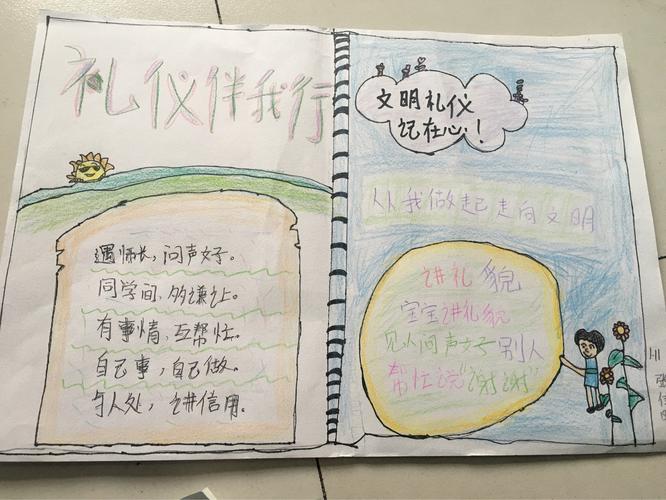 礼仪伴我行
遇师长，问声好。
同学间，多谦让。
有事情，互帮忙。
自己事，自己做。
与人处，讲信用。
文明礼仪
记在心！
从我做起走向文明
讲礼貌
宝宝讲礼貌
见人问声好别人
帮忙说“谢谢”